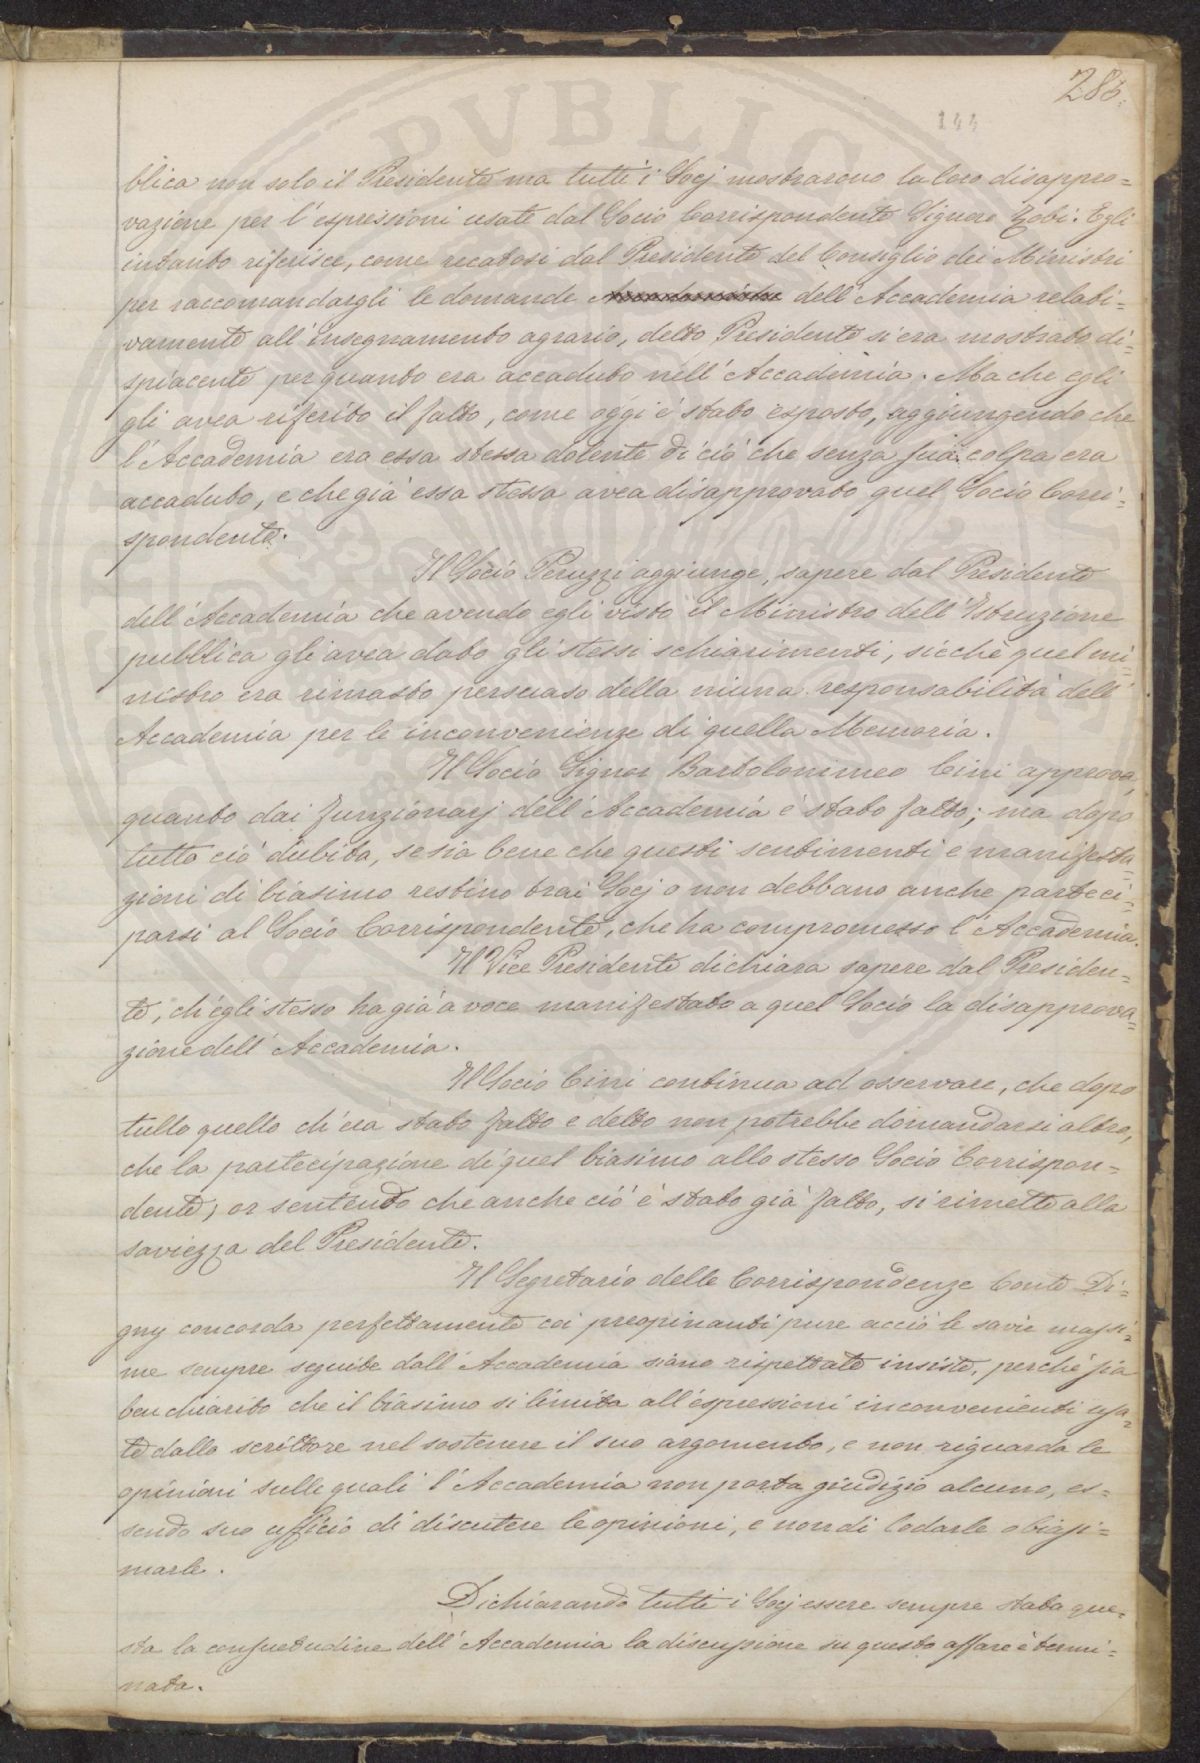 286.
144
blica non solo il Presidente ma tutti i Socj mostrarono la loro disappro=
vazione per l'espressioni usate dal Socio Corrispondente Signore Zobi. Egli
intanto riferisce, come recatosi dal Presidente del Consiglio dei Ministri
per raccomandargli le domande dell'Accademia relati=
vamente all'insegnamento agrario, detto Presidente si era mostrato di=
spiacente per quanto era accaduto nell'Accademia. Ma che egli
gli avea riferito il fatto, come oggi è stato esposto, aggiungendo che
l'Accademia era essa stessa dolente di ciò che senza sua colpa era
accaduto, e che già essa stessa avea disapprovato quel Socio Corri=
spondente.
Il Socio Peruzzi aggiunge, sapere dal Presidente
dell'Accademia che avendo egli visto il Ministro dell'Istruzione
pubblica gli avea dato gli stessi schiarimenti, sicchè quel mi=
nistro era rimasto persuaso della niuna responsabilità dell'
Accademia per le inconvenienze di quella Memoria.
Il Socio Signor Bartolommeo Cini approva
quanto dai funzionarj dell'Accademia è stato fatto; ma dopo
tutto ciò dubita, se sia bene che questi sentimenti e manifesta=
zioni di biasimo restino trai Socj o non debbano anche parteci=
parsi al Socio Corrispondente, che ha compromesso l'Accademia.
Il Vice Presidente dichiara sapere dal Presiden=
te, ch'egli stesso ha già a voce manifestato a quel Socio la disapprova=
zione dell'Accademia.
Il Socio Cini continua ad osservare, che dopo
tutto quello ch'era stato fatto e detto non potrebbe domandarsi altro,
che la partecipazione di quel biasimo allo stesso Socio Corrispon=
dente, or sentendo che anche ciò è stato già fatto, si rimette alla
saviezza del Presidente.
Il Segretario delle Corrispondenze Conte Di=
gny concorda perfettamente coi preopinanti pure acciò le savie massi=
me sempre seguite dall'Accademia siano rispettate insiste, perchè sia
ben chiarito che il biasimo si limita all'espressioni inconvenienti usa=
te dallo scrittore nel sostenere il suo argomento, e non riguarda le
opinioni sulle quali l'Accademia non porta giudizio alcuno, es=
sendo suo ufficio di discutere le opinioni, e non di lodarle o biasi=
marle.
Dichiarando tutti i Socj essere sempre stata que=
sta la consuetudine dell'Accademia la discussione su questo affare è termi=
nata.